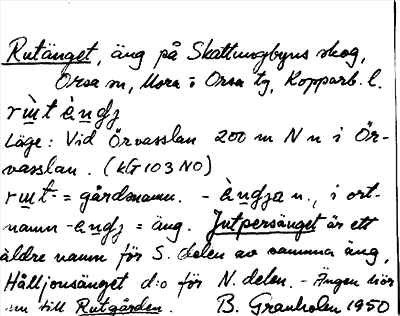 Rutänget, äng på Skattungbyns skog,
Orsa sn, Mora i Orsa tg, Kopparb. l.
rɯ̀t àngʒ
Läge: Vid Örvasslan 200 m N n i Ör-
vasslan. (KG 103 NO)
rɯt- = gårdsnamn. - àngʒa n., i ort-
namn -angʒ = äng. Jutpersänget är ett
äldre namn för S. delen av samma äng,
Hålljonsänget d:o för N. delen. - Ängen hör
nu till Rutgården. B. Granholm 1950